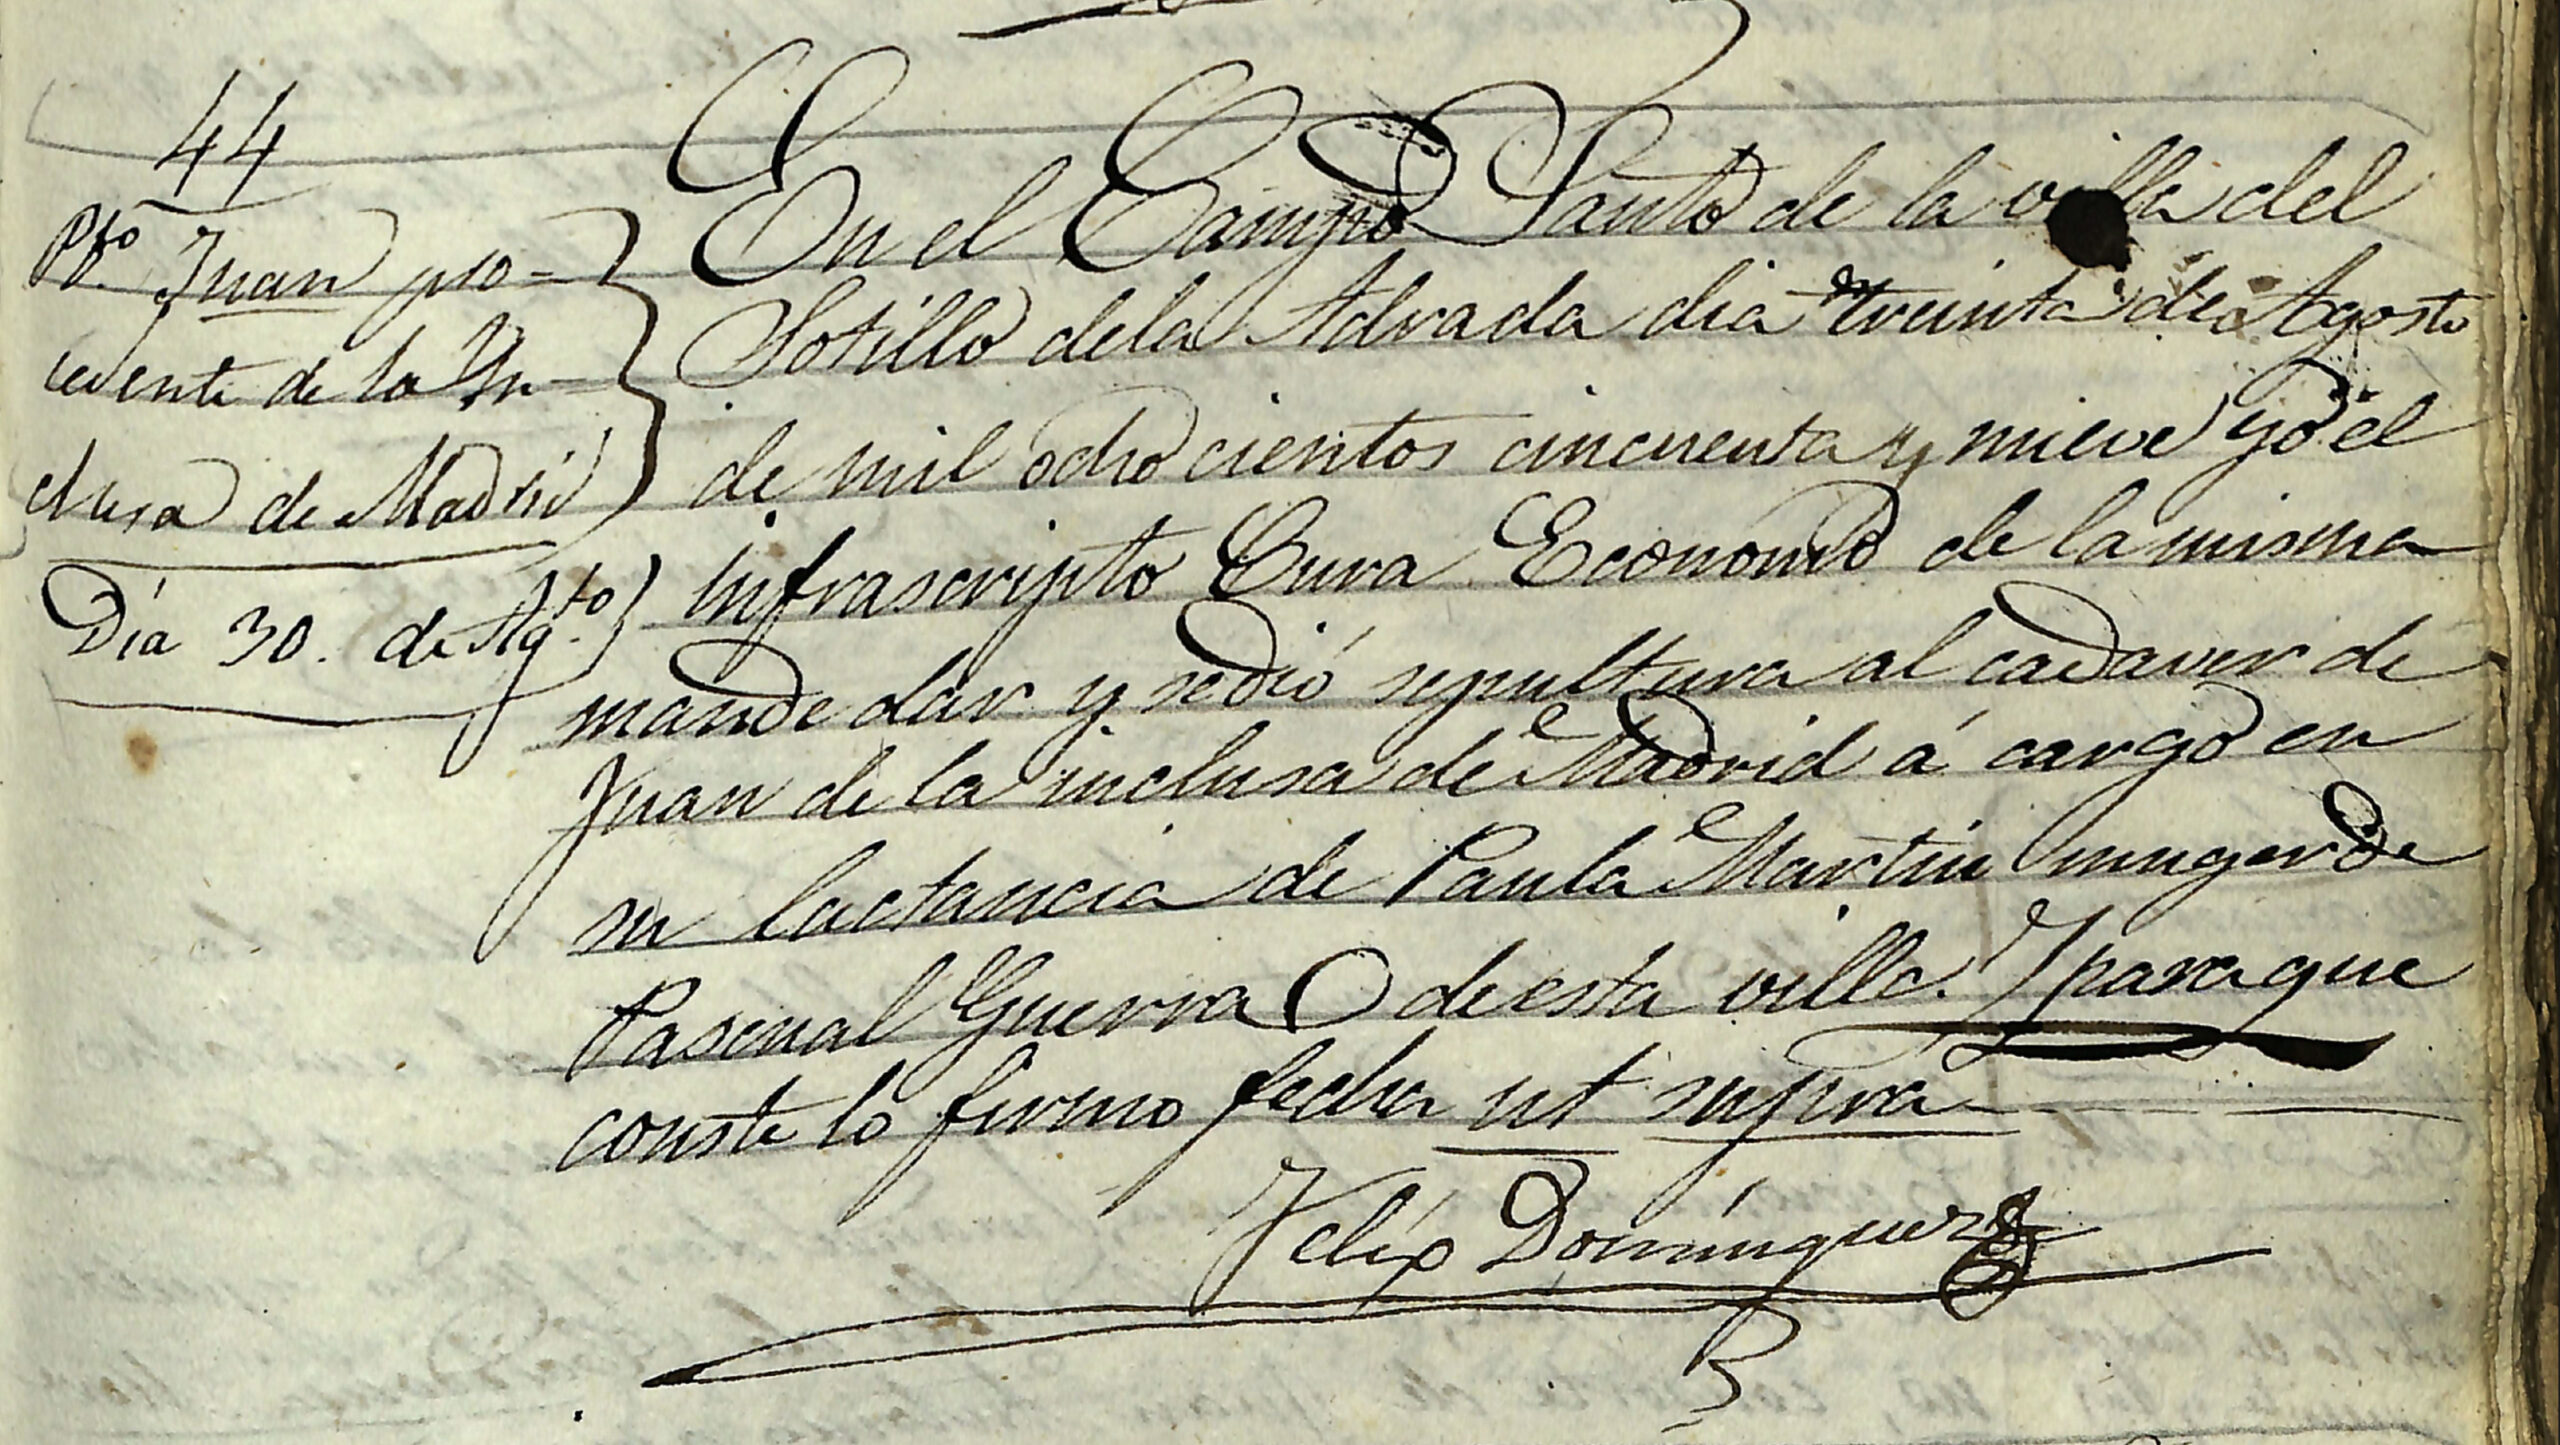 44
Pb.to Juan pro-
cedente de la In-
clusa de Madrid
Dia 30. de Agto.
En el Campo Santo de la villa del
Sotillo dela Adrada dia treinta de Agosto
de mil ochocientos cincuenta y nueve yo el
infrascripto Cura Economo de la misma
mande dar y se dió sepultura al cadaver de
Juan de la inclusa de Madrid á cargo en
su lactancia de Paula Martin muger de
Pascual Guerra de esta villa. Y para que
conste lo firmo fecha ut supra
Felix Domínguez